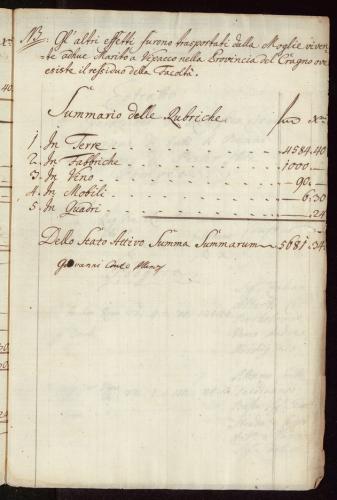 NB: Gl'altri effetti furono trasportati dalla Moglie viven-
-te adhuc Marito a Vipacco nella Provincia del Cragno ove
esiste il residuo della Facoltà.
Summario delle Rubriche
1. In Terre 4584.40
2. In Fabbriche 1000.
3. In Vino 90.
4. In Mobili 6.30
5. In Quadri .24
Dello Stato Attivo Summa Summarum 5681.34
Giovanni